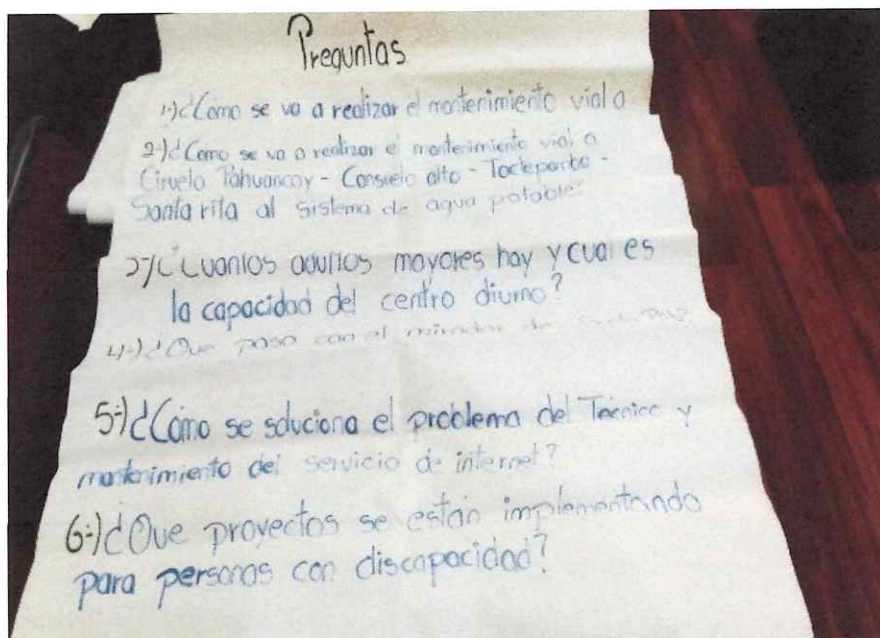 Preguntas
1-)¿Como se va a realizar el mantenimiento vial a
2-)¿Como se va a realizar el mantenimiento vial a
Ciruelo Pahuancay - Consuelo alto - Tocteparba -
Santa rita al sistema de agua potable?
3-)¿Cuantos adultos mayores hay y cual es
la capacidad del centro diurno?
4-)¿Que paso con el mirador de
5-)¿Cómo se soluciona el problema del Técnico y
mantenimiento del servicio de internet?
6-)¿Que proyectos se están implementando
para personas con discapacidad?